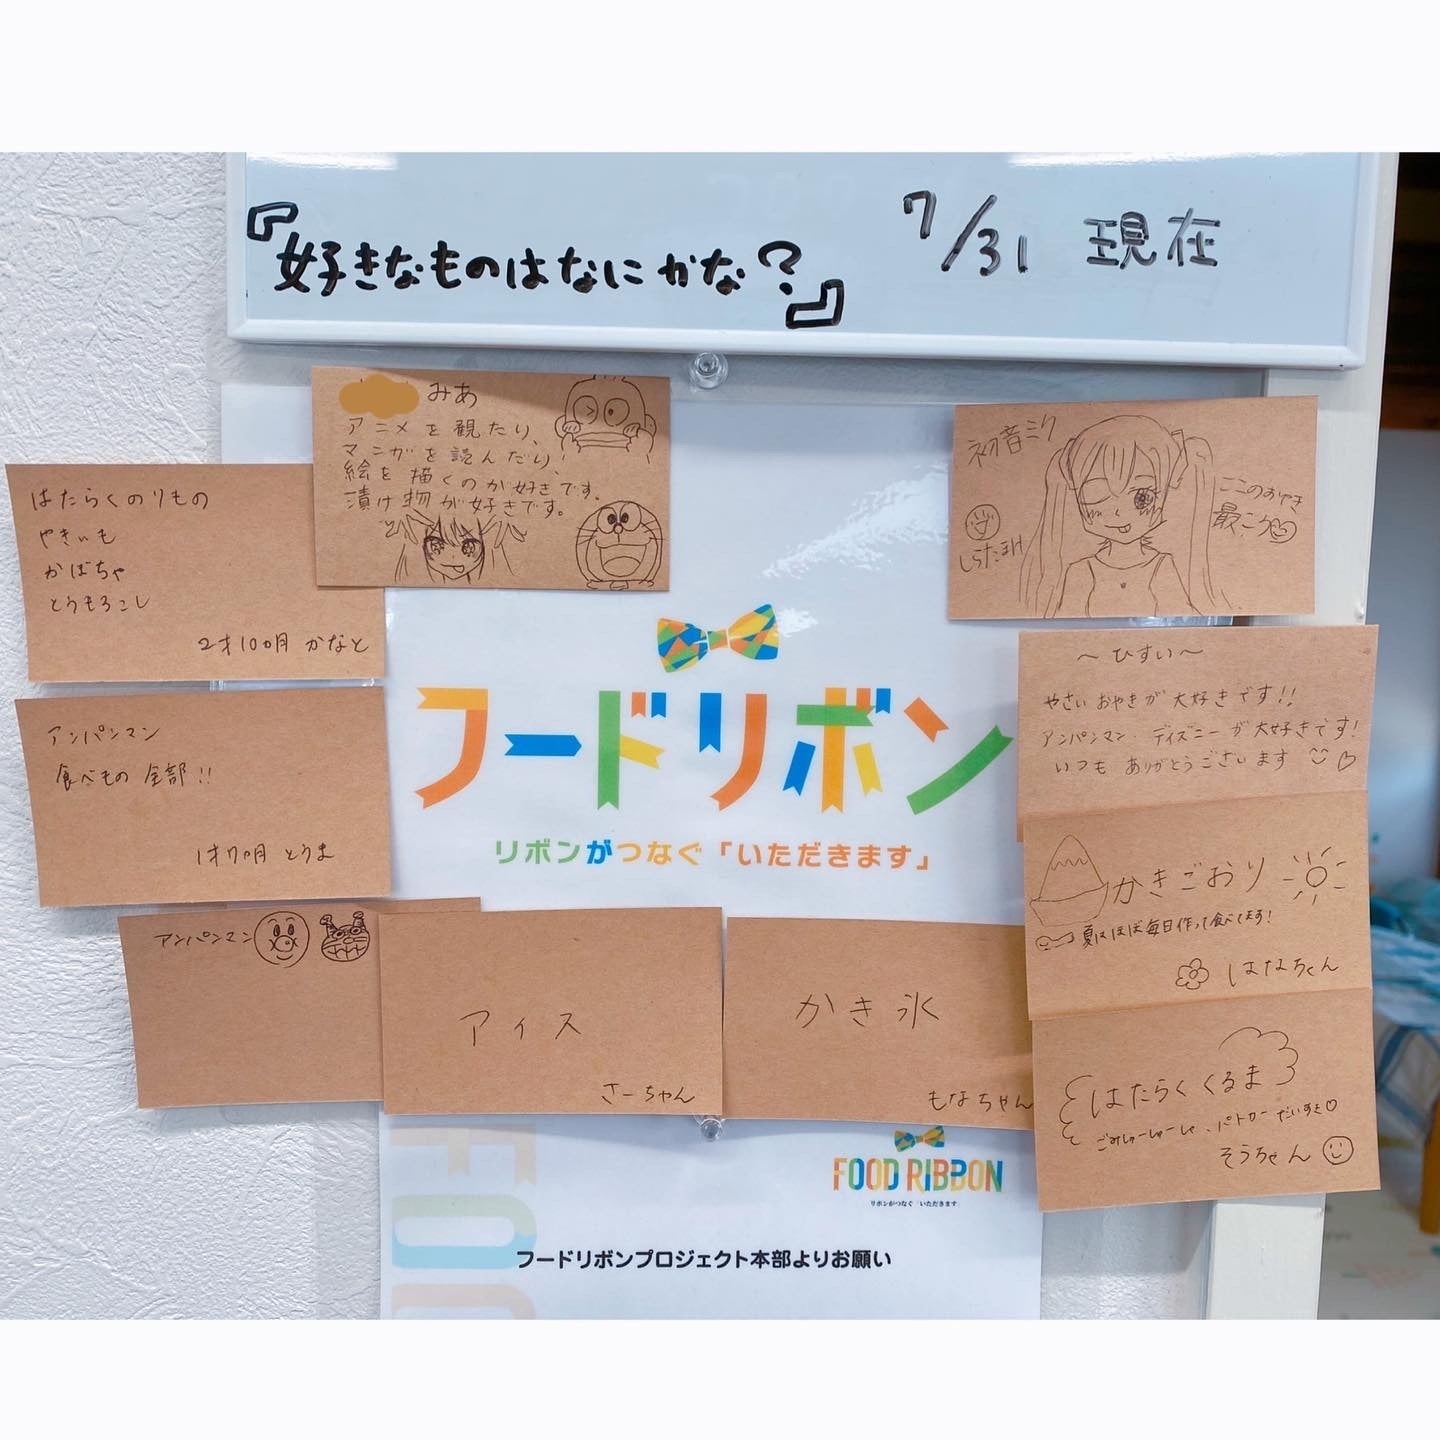 『好きなものはなにかな?』
7/31 現在
みあ
アニメを観たり、
マンガを読んだり、
絵を描くのが好きです。
漬け物が好きです。
はたらくのりもの
やきいも
かぼちゃ
とうもろこし
2才10ヵ月 かなと
アンパンマン
食べもの 全部!!
1才7ヵ月 とうま
アンパンマン
アイス
さーちゃん
かき氷
もなちゃん
初音ミク
ここのおやき
最こう
しらたまH
~ひすい~
やさいおやきが大好きです!!
アンパンマン・ディズニーが大好きです!
いつも ありがとうございます
かきごおり
夏はほぼ毎日作って食べてます!
はなちゃん
はたらくくるま
ごみしゅーしゅーしゃ、パトカー だいすき♡
そうちゃん
フードリボン
リボンがつなぐ「いただきます」
FOOD RIBBON
リボンがつなぐ「いただきます」
フードリボンプロジェクト本部よりお願い